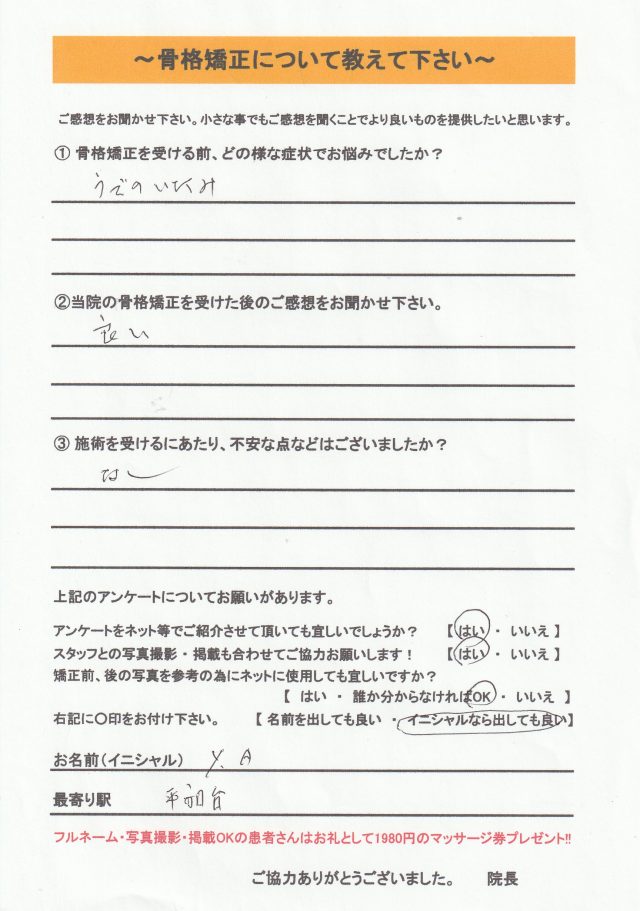 ～骨格矯正について教えて下さい～
ご感想をお聞かせ下さい。小さな事でもご感想を聞くことでより良いものを提供したいと思います。
① 骨格矯正を受ける前、どの様な症状でお悩みでしたか？
うでのいたみ
②当院の骨格矯正を受けた後のご感想をお聞かせ下さい。
良い
③ 施術を受けるにあたり、不安な点などはございましたか？
なし
上記のアンケートについてお願いがあります。
アンケートをネット等でご紹介させて頂いても宜しいでしょうか？ 【 はい ・ いいえ 】
スタッフとの写真撮影・掲載も合わせてご協力お願いします！ 【 はい ・ いいえ 】
矯正前、後の写真を参考の為にネットに使用しても宜しいですか？
【 はい ・ 誰か分からなければOK ・ いいえ 】
右記に〇印をお付け下さい。 【 名前を出しても良い ・ イニシャルなら出しても良い】
お名前（イニシャル） Y. A
最寄り駅 平和台
フルネーム・写真撮影・掲載OKの患者さんはお礼として1980円のマッサージ券プレゼント!!
ご協力ありがとうございました。 院長